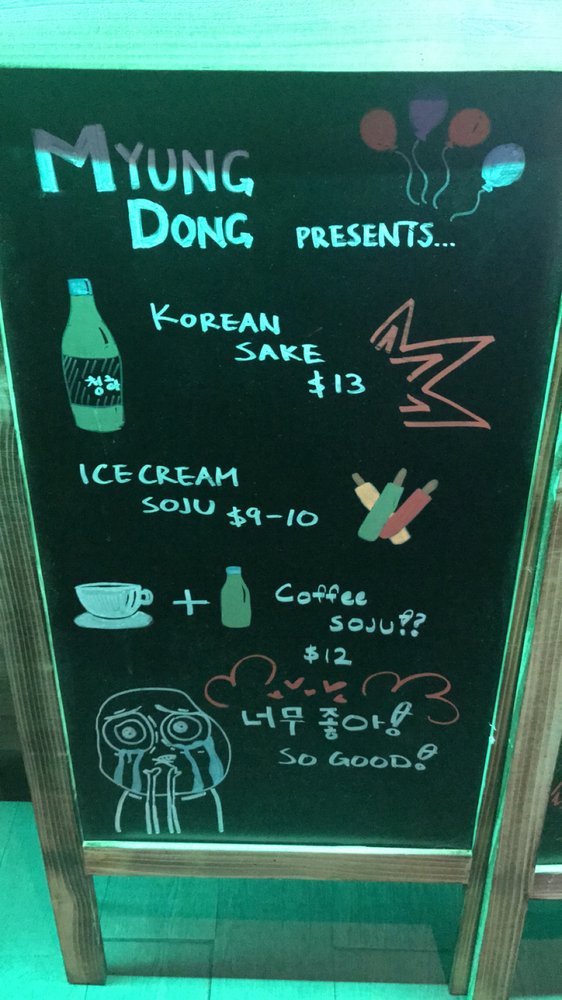 MYUNG
DONG PRESENTS...
KOREAN
SAKE
$13
청하
ICE CREAM
SOJU $9-10
+
Coffee
SOJU!?
$12
너무 좋아!
SO GOOD!